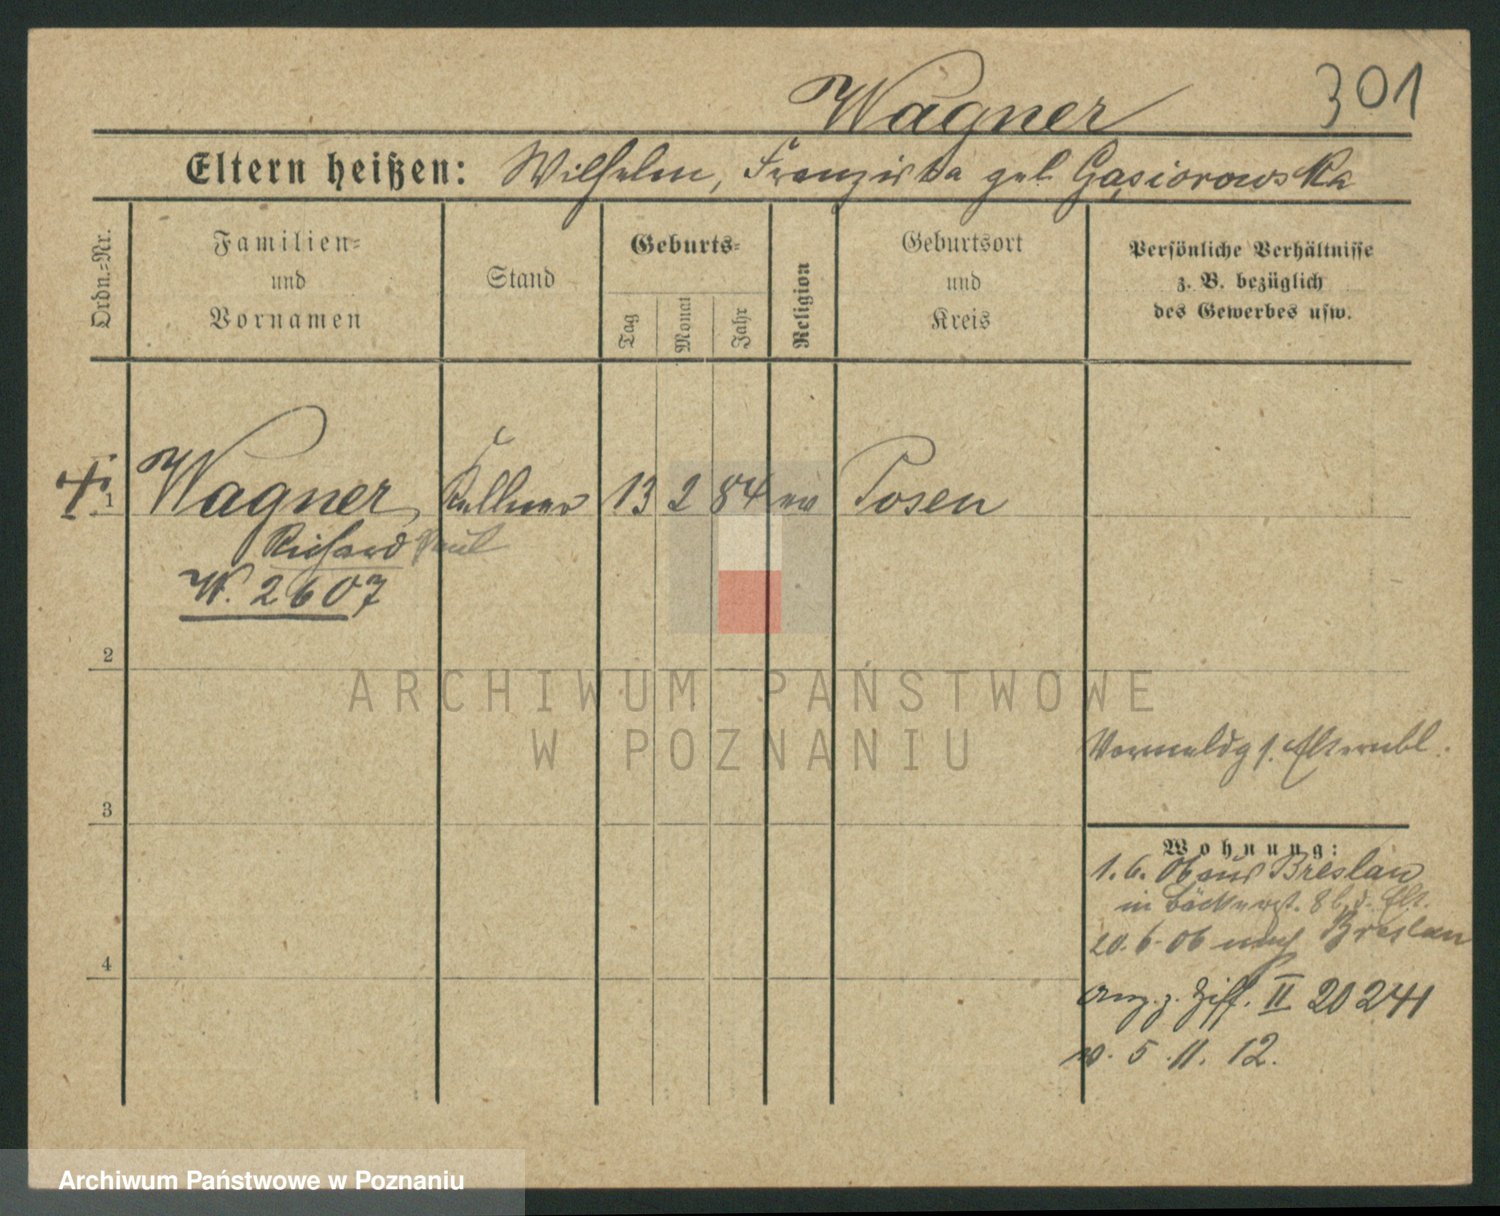 301
Wagner
Eltern heißen: Wilhelm, Franziska geb Gąsiorowska
Ordn.=Nr.
Familien=
und
Vornamen
Stand
Geburts=
Tag
Monat
Jahr
Religion
Geburtsort
und
Kreis
Persönliche Verhältnisse
z. B. bezüglich
des Gewerbes usw.
1 Wagner, Kellner 13 2 84 ev Posen
Richard Paul
W. 2607
2
ARCHIWUM PAŃSTWOWE
W POZNANIU
Vormeldg s. Elternbl.
3
Wohnung:
1. 6. 06 aus Breslau
in Bäckerst. 8 b. d. Elt.
20. 6. 06 nach Breslau
4
Anz. z. Ziff. II 20241
v. 5. 11. 12.
Archiwum Państwowe w Poznaniu